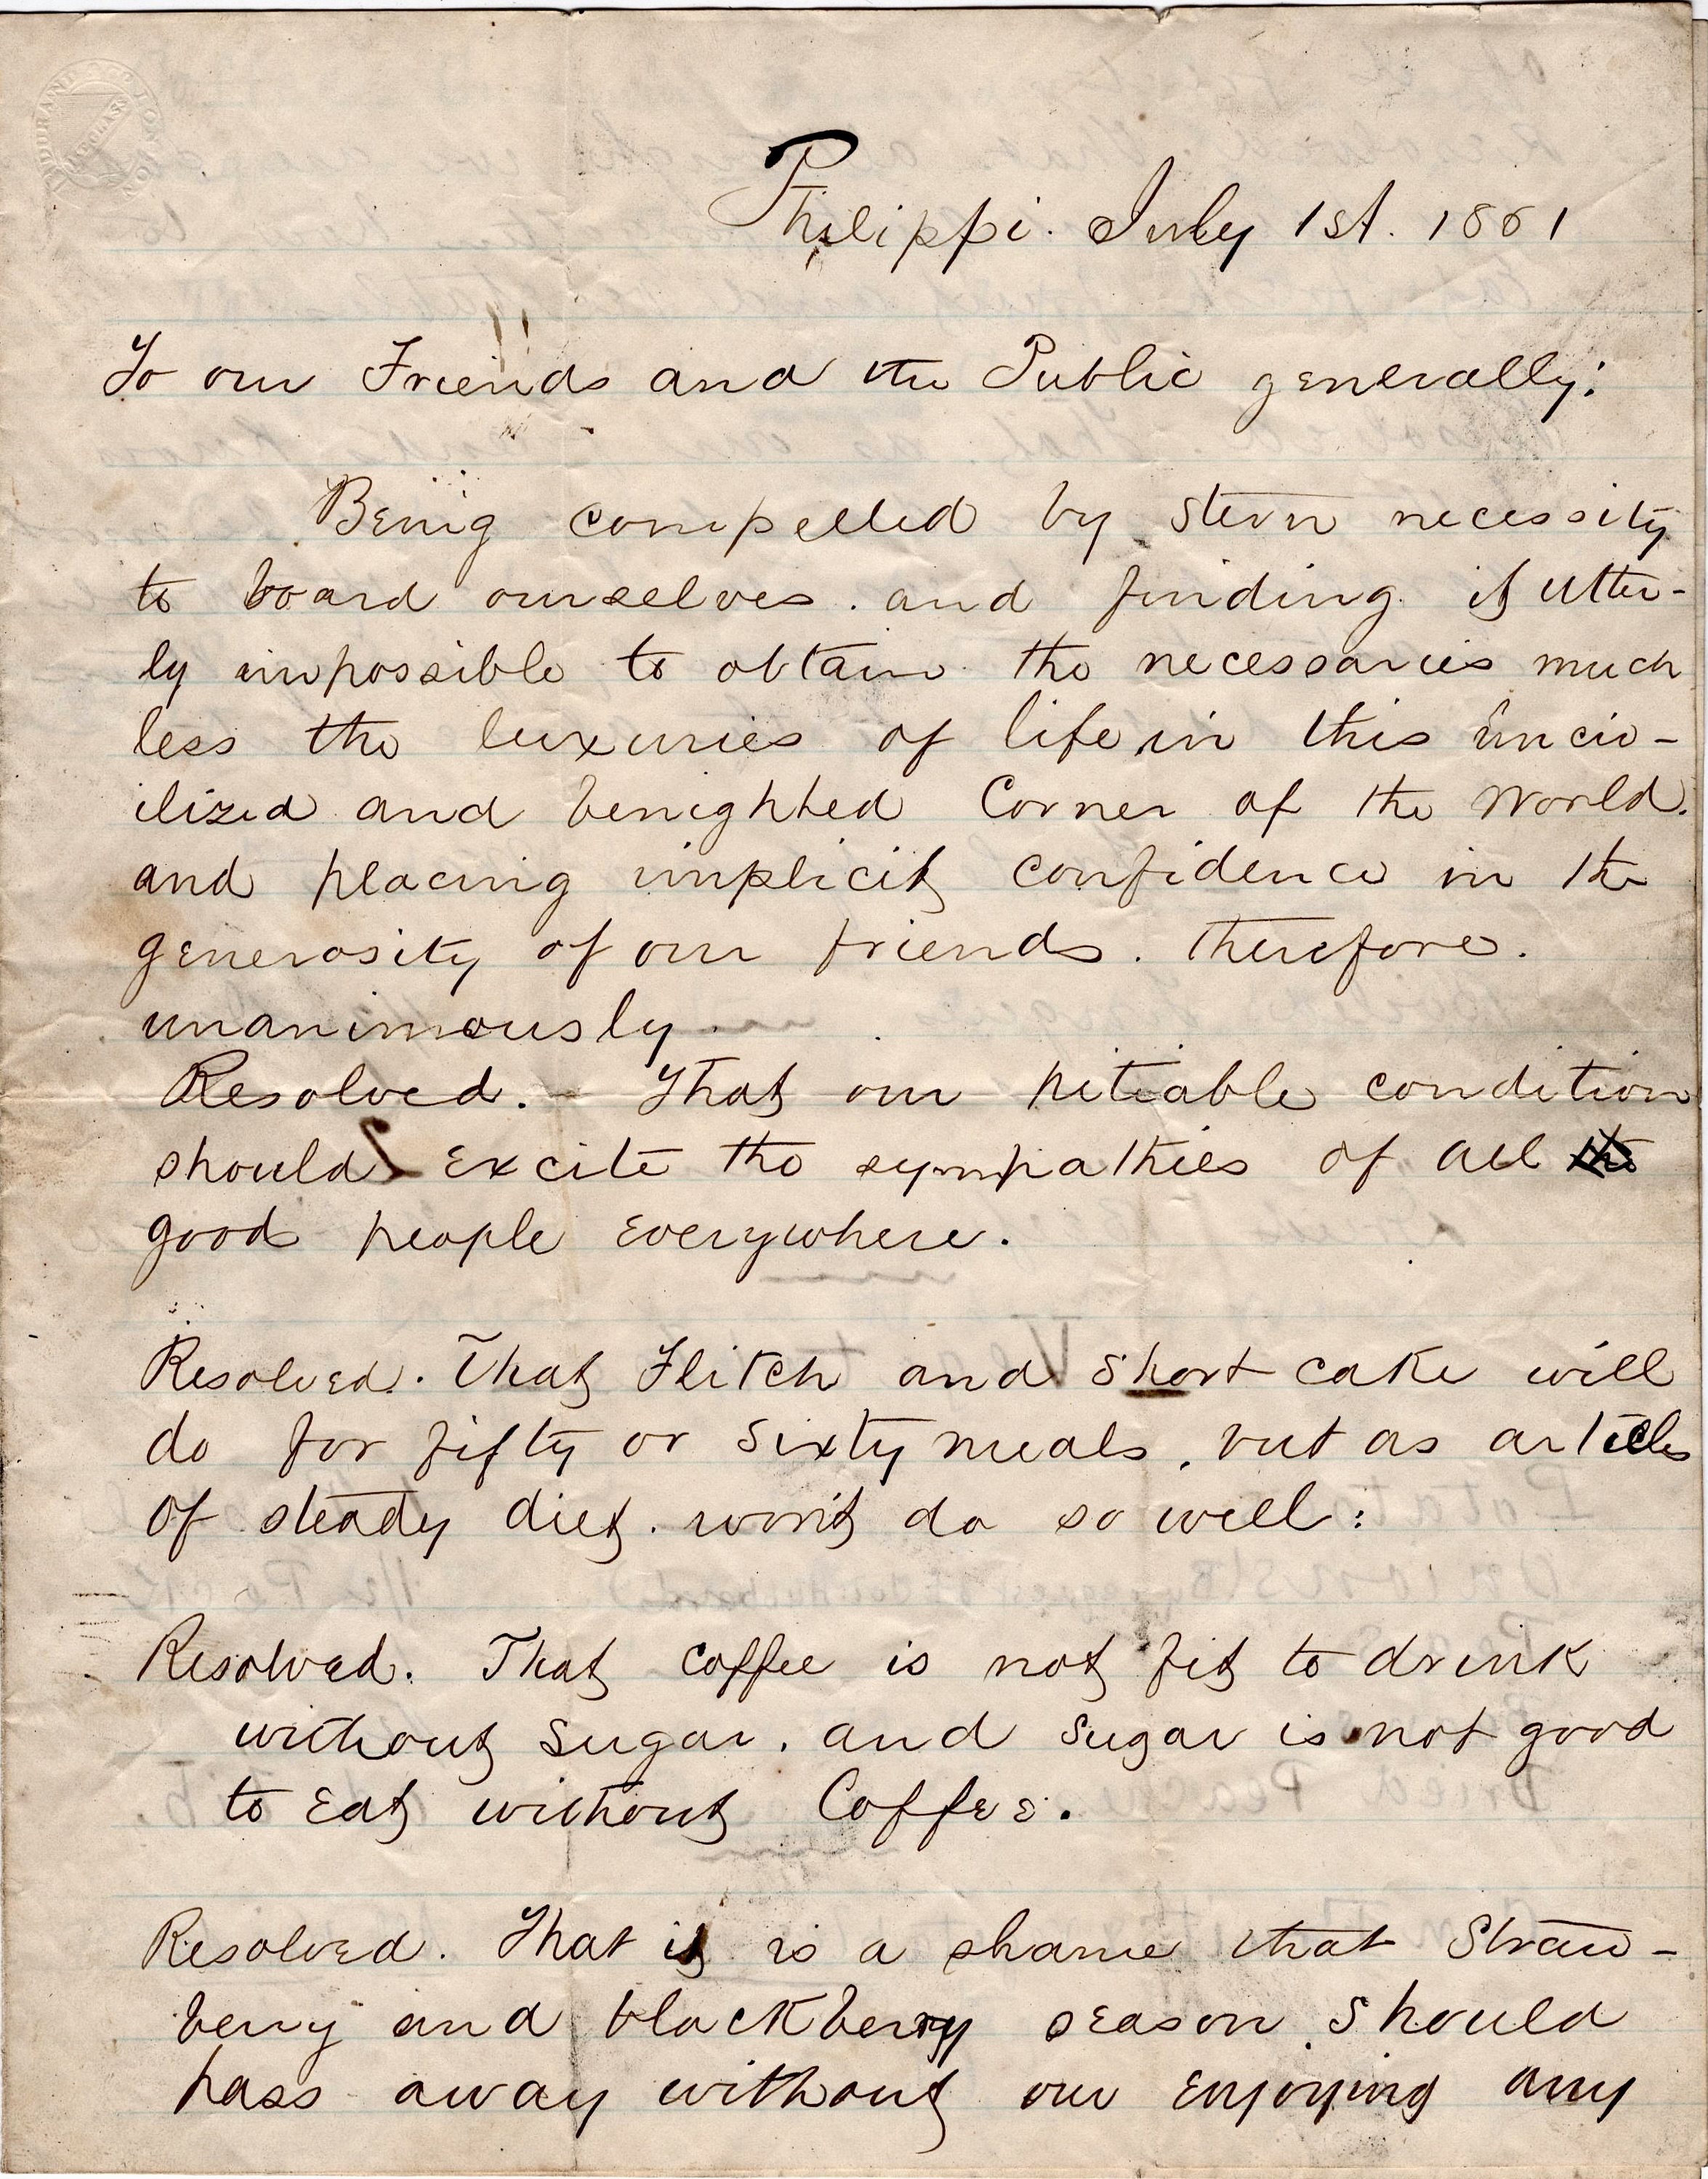 Philippi. July 1st. 1861
To our Friends and the Public generally:
Being compelled by stern necessity
to board ourselves. and finding it utter-
ly impossible to obtain the necessaries much
less the luxuries of life, in this unciv-
ilized and benighted Corner of the World.
and placing implicit confidence in the
generosity of our friends. therefore.
unanimously.
Resolved. - That our pitiable condition
should excite the sympathies of all the
good people everywhere.
Resolved. That Flitch and short cake will
do for fifty or sixty meals, but as articles
of steady diet. won't do so well:
Resolved. That coffee is not fit to drink
without sugar. and sugar is not good
to eat without Coffee.
Resolved. That it is a shame that Straw-
berry and blackberry season should
pass away without our enjoying any